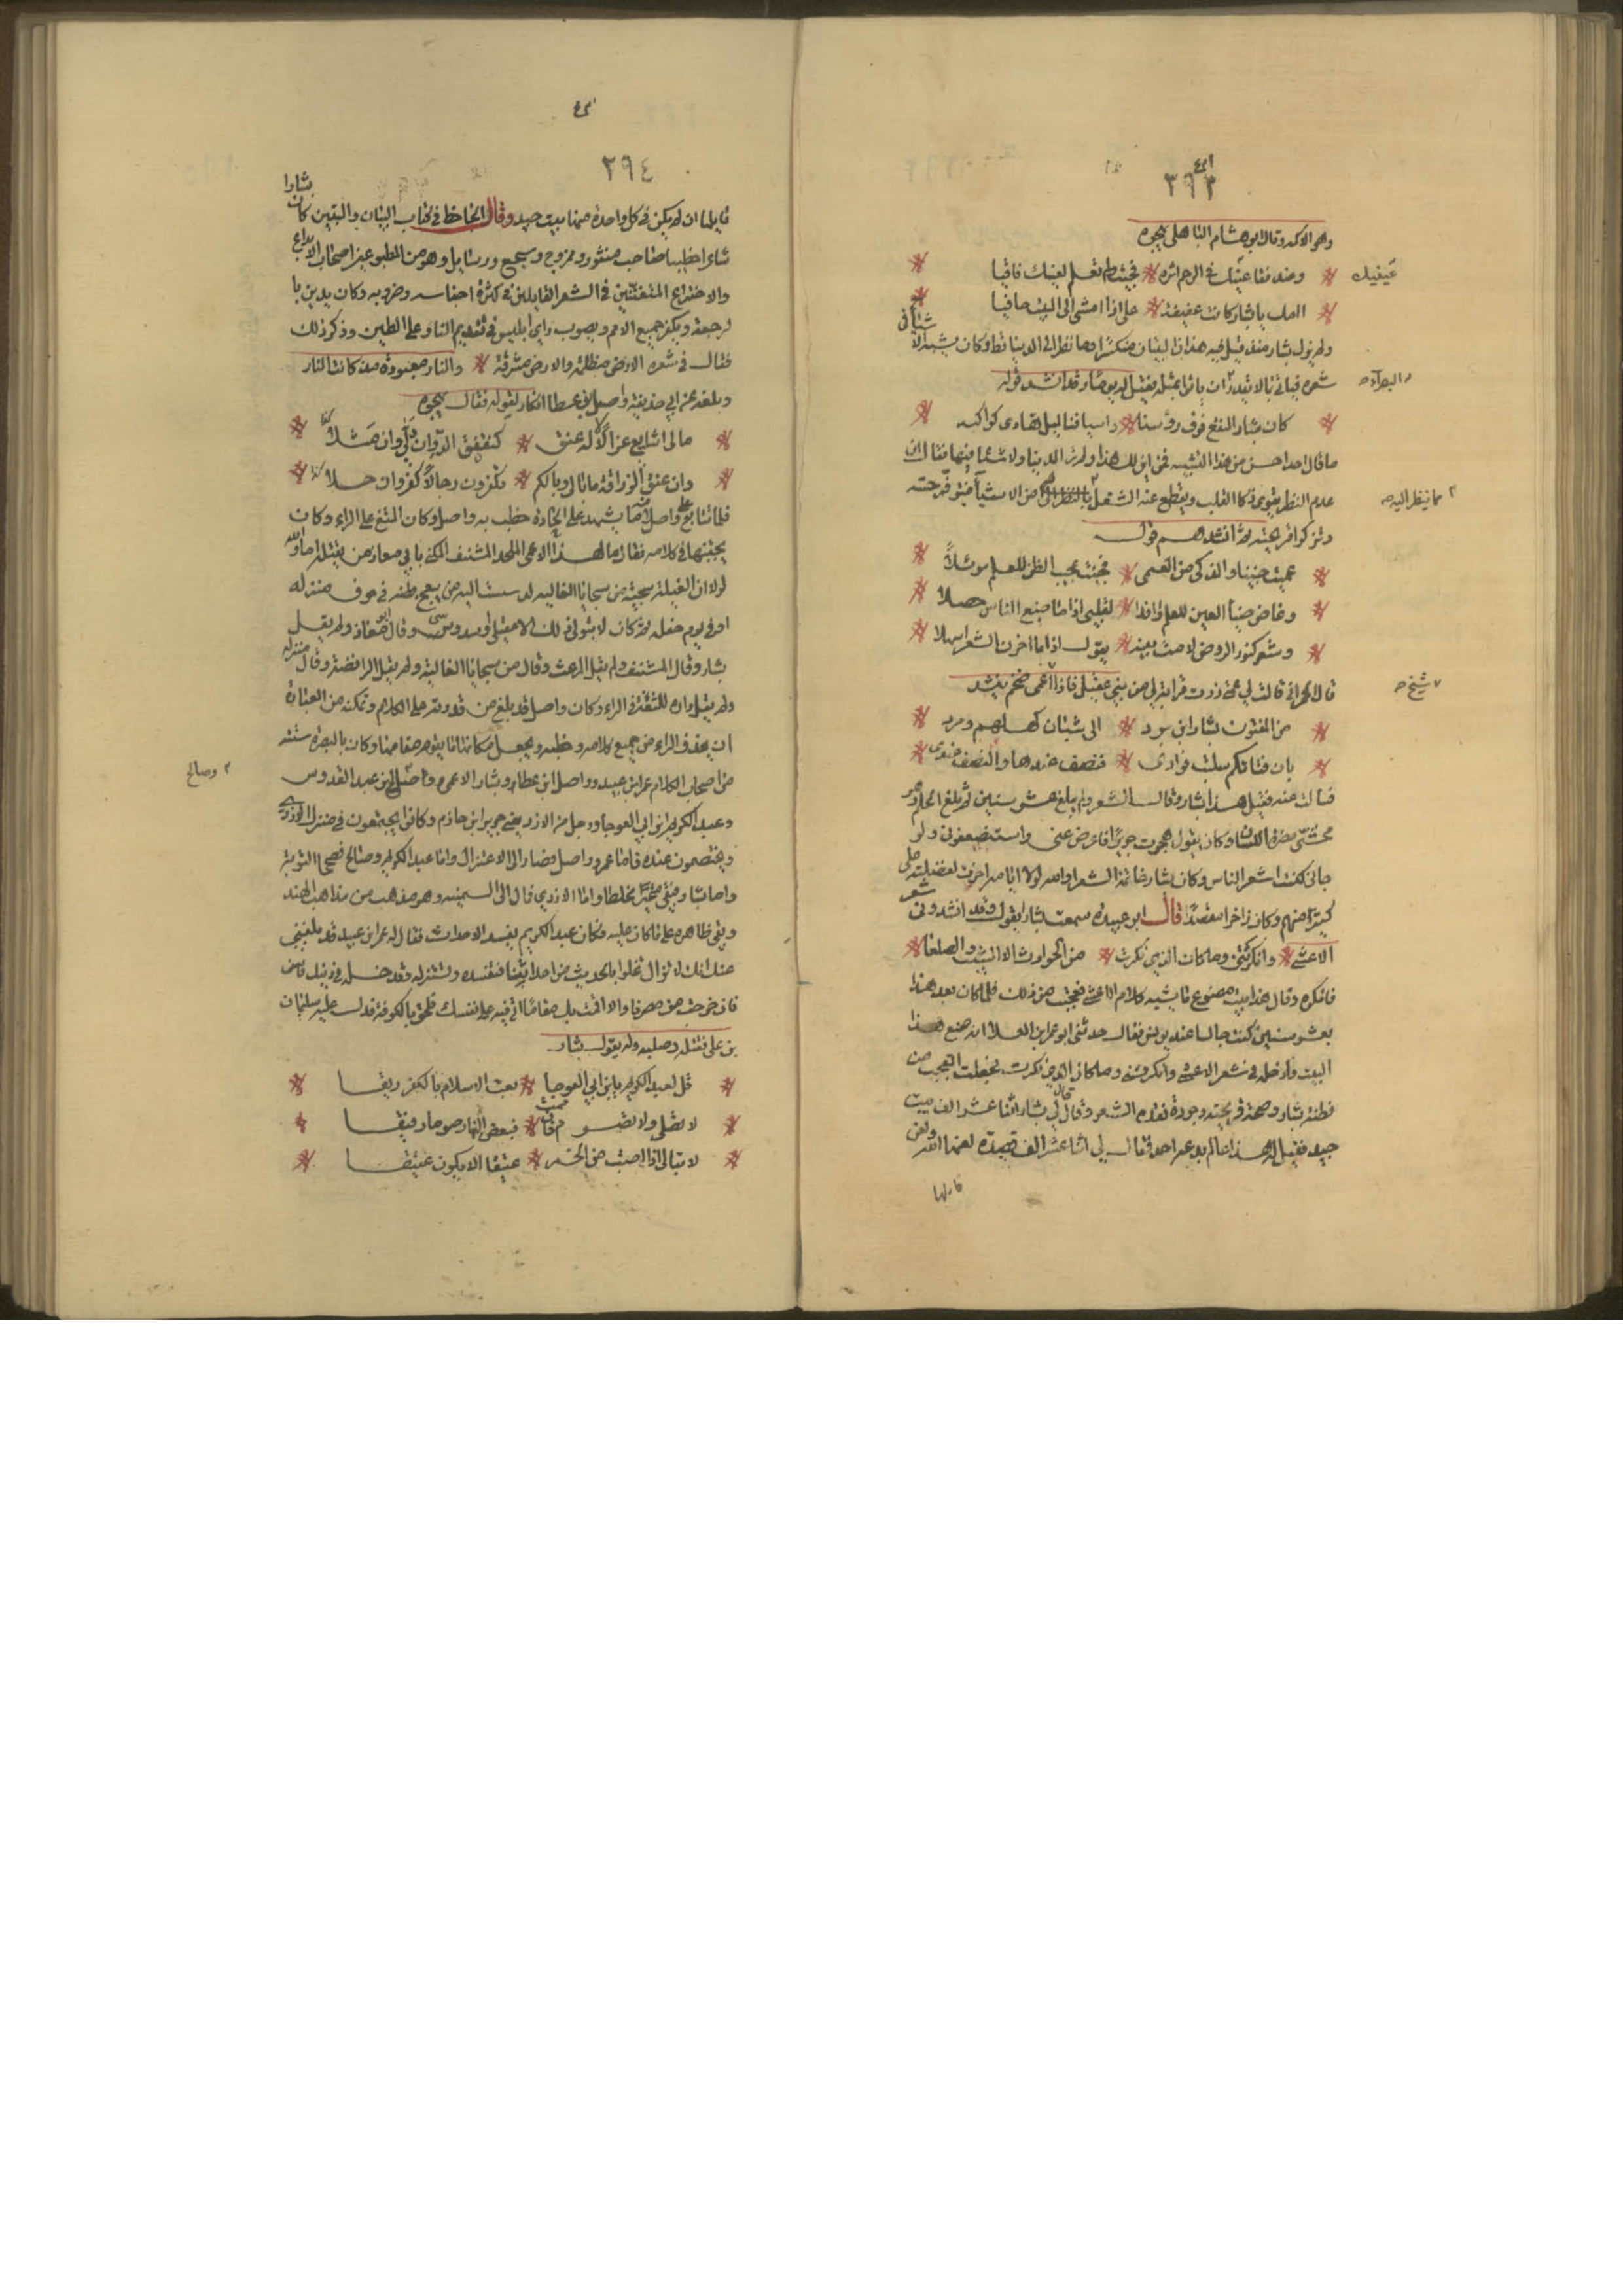 ٣٦٣
وهو الاكمه وقال ابو هشام الباهلي يهجوه
وعبد فقا عينيك في الرحم ائره فجئت ولم تعلم لعينيك فاقيا
عينيك
اامك يا بشار كانت عفيفة على اذا امشى الى البيت حافيا
ولم يزل بشار منذ قيل فيه هذان البيتان منكسرا وما نظر الى الدنيا قط وكان يشبه الاشيا في
شعره فياتي بما لا يقدر ان ياتوا بمثله فقيل له يوما وقد انشد قوله
البصراء
كان مثار النقع فوق رؤسنا واسيافنا ليل تهاوى كواكبه
ما قال احد احسن من هذا التشبيه فمن اين لك هذا ولم تر الدنيا ولا شيا فيها فقال ان
عدم النظر يقوي ذكا القلب ويقطع عنه الشغل من الاشيا فيتوفر حسه
مما ينظر اليه
وتزكوا قريحته ثم انشدهم قوله
عميت جنينا والذكى من العمى فجئت عجيب الظن للعلم موئلا
وغاض ضيا العين للعلم رافدا لقلبي اذا ما ضيع الناس حصلا
وشعر كنور الروض لامت بينه بقول اذا ما احزن الشعر اسهلا
قال الحراني قالت لي عمتي زرت قرابة لي من بني عقيل فاذا اعمى ضخم ينشد
شيخ
من المفتون بشار ابن برد الى شبان كهلهم ومرد
بان فتاتكم سلبت فوادي فنصف عندها والنصف عندي
فسالت عنه فقيل هذا بشار وقال الشعر ولم يبلغ عشر سنين ثم بلغ الحلم وهو
مخشي معرة اللسان وكان يقول هجوت جريرا فاعرض عني واستصغرني ولو
جابني لكنت اشعر الناس وكان بشار خاتمة الشعرا والله لولا ايامه اخرت لفضلته على
كثير منهم وكان زاخرا مقصدا قال ابو عبيده سمعت بشارا يقول وقد انشدوني شعر
الاعشى وانكرتني وما كان الذي نكرت من الحوادث الا الشيب والصلعا
فانكره وقال هذا بيت مصنوع ما يشبه كلام الاعشى فعجبت من ذلك فلما كان بعد هذا
بعشر سنين كنت جالسا عند يونس فقال حدثني ابو عمر ابن العلا انه صنع هذا
البيت وادخله في شعر الاعشى وانكرتني وما كان الذي نكرت فجعلت اتعجب من
فطنة بشار وصحة قريحته وجودة نقده الشعر وقال قال لي بشار اثنا عشر الف بيت
جيد فقيل له هذا ما لم يدعه احد فقال لي اثنا عشر الف قصيدة لعنها الله ولعن
قايلها
٣٦٤
قايلها ان لم يكن في كل واحدة منها بيت جيد وقال الجاحظ في كتاب البيان والتبيين كان بشارا
شاعرا خطيبا صاحب منثور ومزدوج وسجع ورسايل وهو من المطبوعين اصحاب الابداع
والاختراع المتفننين في الشعر القايلين في كثرة اجناسه وضروبه وكان يدين با
لرجعة ويكفر جميع الامم ويصوب راي ابليس في تقديم النار على الطين وذكر ذلك
فقال في شعره الارض مظلمة والارض مشرقة والنار معبودة مذ كانت النار
وبلغه عن ابي حذيفة واصل بن عطا انكار لقوله فقال يهجوه
مالي اشايع غزالا له عنق كنقنق الدوان ولى وان مثلا
وان عنق الزرافة ما بالي وبالكم تكفرون رجالا كفروا رجلا
فلما تتابع على واصل ما يشهد على الحاده خطب به واصل وكان الثغ على الراء وكان
يجتنبها في كلامه فقال ما لهذا الاعمى الملحد المشنف المكنى بابي معاذ من يقتله اما والله
لولا ان الغيلة سجية من سجايا الغالية لدسست اليه من يبعج بطنه في جوف منزله
او في يوم حفله ثم كان لا يتولى ذلك الا عقيلي او سدوسي وقال ابو معاذ ولم يقل
بشار وقال المشنف ولم يقل المرعث وقال من سجايا الغالية ولم يقل الرافضة وقال منزله
ولم يقل داره للثغته في الراء وكان واصل قد بلغ من قدرته على الكلام وتمكنه من العبارة
ان يحذف الراء من جميع كلامه وخطبه ويجعل مكانها ما يقوم مقامها وكان بالبصرة ستة
من اصحاب الكلام عمر ابن عبيد وواصل ابن عطا وبشار الاعمى وصالح ابن عبد القدوس
وصالح
وعبد الكريم ابن ابي العوجا ورجل من الازد يعني جرير ابن حازم وكانوا يجتمعون في منزل الازدي
ويختصمون عنده فاما عمرو وواصل فصارا الى الاعتزال واما عبد الكريم وصالح فصححا التوبة
واما بشار فبقي متحيرا مخلطا واما الازدي فمال الى السمنية وهو مذهب من مذاهب الهند
وبقي ظاهره على ما كان عليه فكان عبد الكريم يفسد الاحداث فقال له عمر ابن عبيد قد بلغني
عنك انك لا تزال تخلوا بالحديث من احداثنا فتفسده وتستزله وتدخله في دينك
فان خرجت من مصرنا والا قمت بك مقاما اتي فيه على نفسك فلحق بالكوفة فدل عليه سليمان
بن علي فقتله وصلبه وله يقول بشار
قل لعبد الكريم يا ابن ابي العوجا بعت الاسلام بالكفر ريقا
لا تصلي ولا تصوم فان صمت فبعض النهار صوما رقيقا
لا تبالي اذا اصبت من الخمر عتيقا الا يكون عتيقا